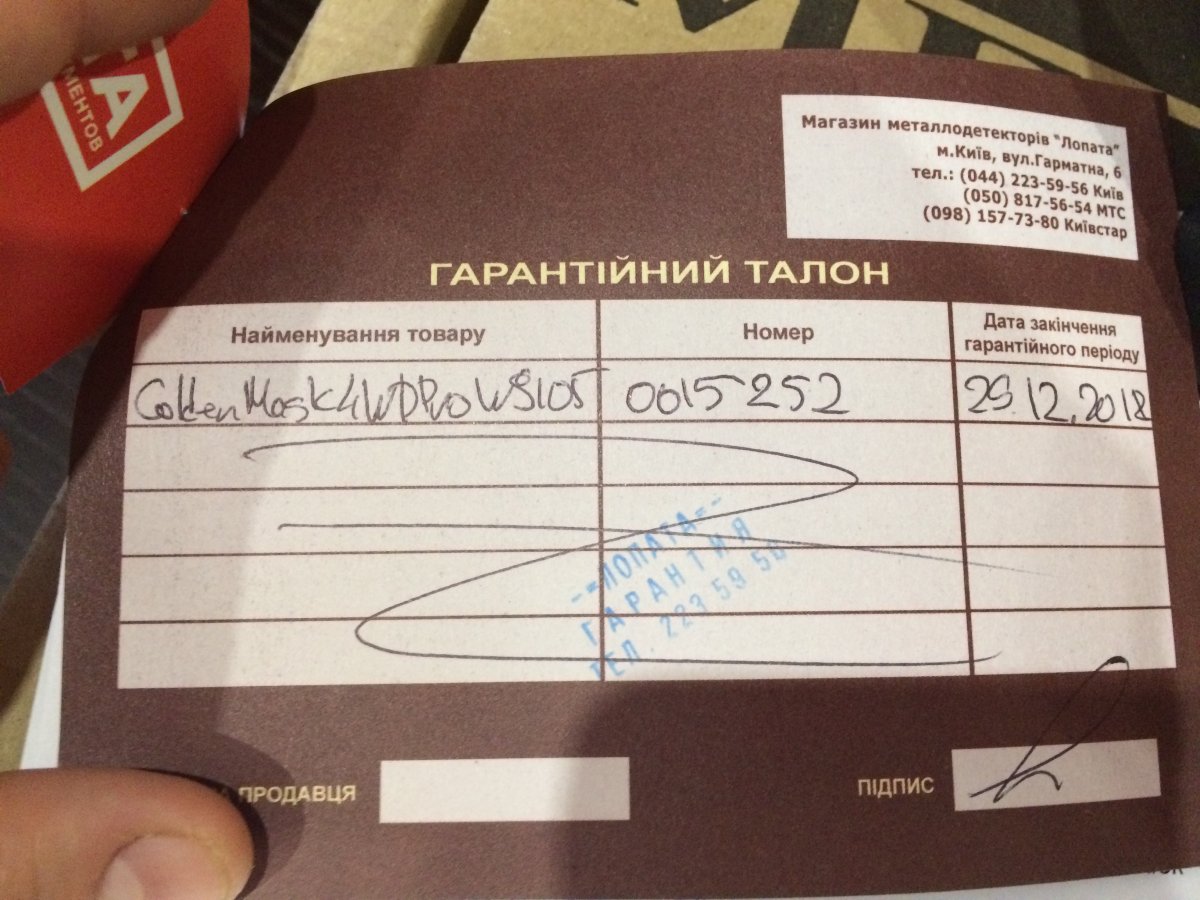 МЕНТОВ
Магазин металлодетекторів "Лопата"
м.Київ, вул.Гарматна, 6
тел.: (044) 223-59-56 Київ
(050) 817-56-54 МТС
(098) 157-73-80 Київстар
ГАРАНТІЙНИЙ ТАЛОН
Найменування товару
Номер
Дата закінчення
гарантійного періоду
Golden Mask 4WD Pro WS105
0015252
29.12.2018
==ЛОПАТА==
ГАРАНТИЯ
ТЕЛ. 223 59 56
ПРОДАВЦЯ
ПІДПИС